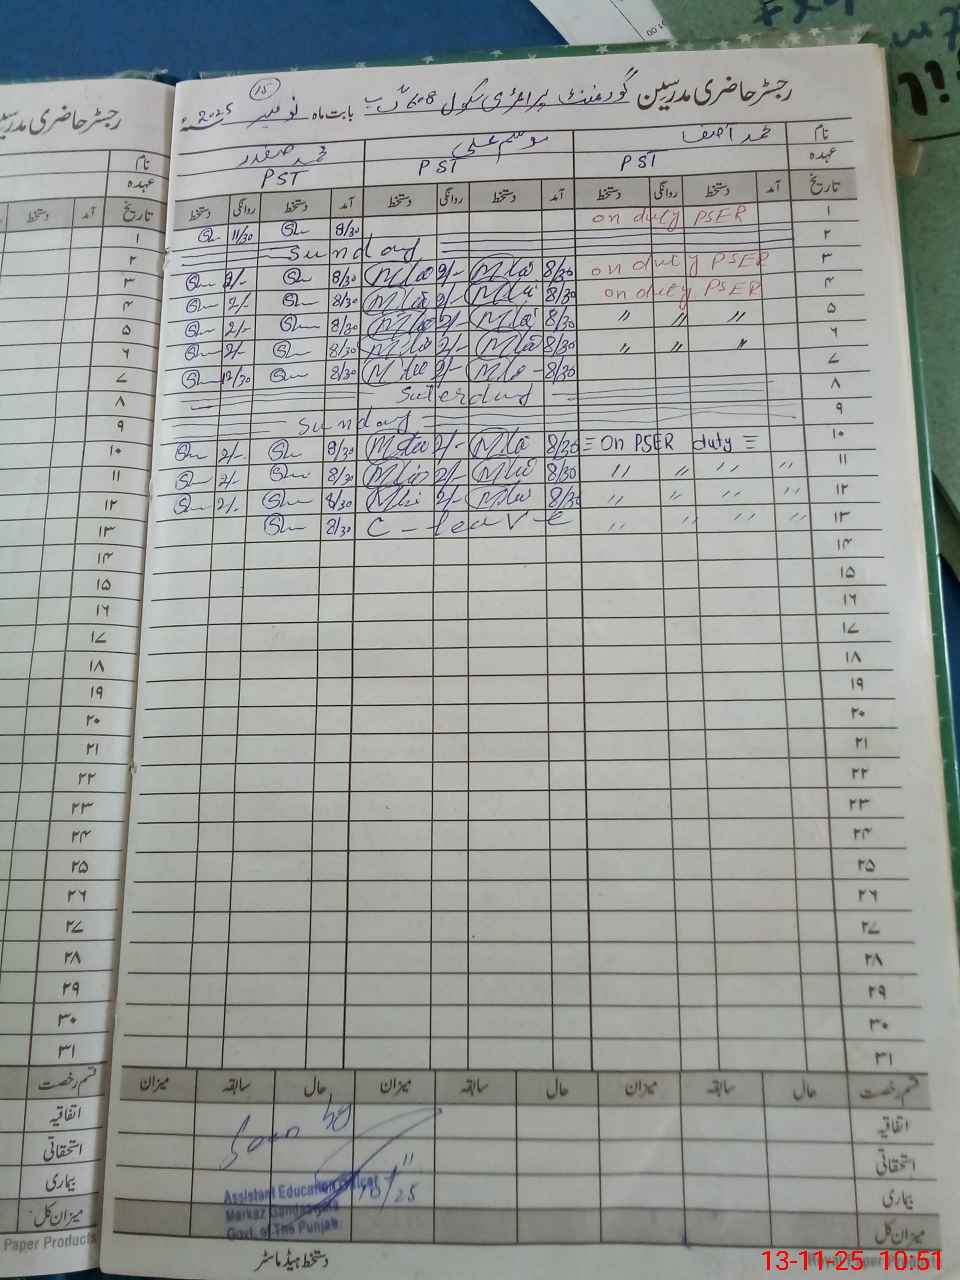 رجسٹر حاضری مدرسین گورنمنٹ پرائمری سکول 608 گ ب بابت ماہ نومبر 2025ء
15
نام محمد آصف موسم علی محمد صفدر
عہدہ PST PST PST
تاریخ آمد دستخط روانگی دستخط آمد دستخط روانگی دستخط آمد دستخط روانگی دستخط
۱ on duty PSER 8/30 11/30
۲ Sunday
۳ on duty PSER 8/30 2/- 8/30 2/-
۴ on duty PSER 8/30 2/- 8/30 2/-
۵ " " " 8/30 2/- 8/30 2/-
۶ " " " 8/30 2/- 8/30 2/-
۷ 8/30 2/- 8/30 12/30
۸ Saterday
۹ Sunday
۱۰ = On PSER duty = 8/30 2/- 8/30 2/-
۱۱ " " " " 8/30 2/- 8/30 2/-
۱۲ " " " " 8/30 2/- 8/30 2/-
۱۳ " " " " C-leave 8/30
۱۴
۱۵
۱۶
۱۷
۱۸
۱۹
۲۰
۲۱
۲۲
۲۳
۲۴
۲۵
۲۶
۲۷
۲۸
۲۹
۳۰
۳۱
قسم رخصت حال سابقہ میزان حال سابقہ میزان حال سابقہ میزان
اتفاقیہ
استحقاقی
بیماری
میزان کل
Seen by
Assistant Education Officer
Markaz
Govt. of The Punjab
دستخط ہیڈ ماسٹر
رجسٹر حاضری مدرسین
نام
عہدہ
تاریخ آمد دستخط
۱
۲
۳
۴
۵
۶
۷
۸
۹
۱۰
۱۱
۱۲
۱۳
۱۴
۱۵
۱۶
۱۷
۱۸
۱۹
۲۰
۲۱
۲۲
۲۳
۲۴
۲۵
۲۶
۲۷
۲۸
۲۹
۳۰
۳۱
قسم رخصت
اتفاقیہ
استحقاقی
بیماری
میزان کل
Paper Products
13-11-25 10:51